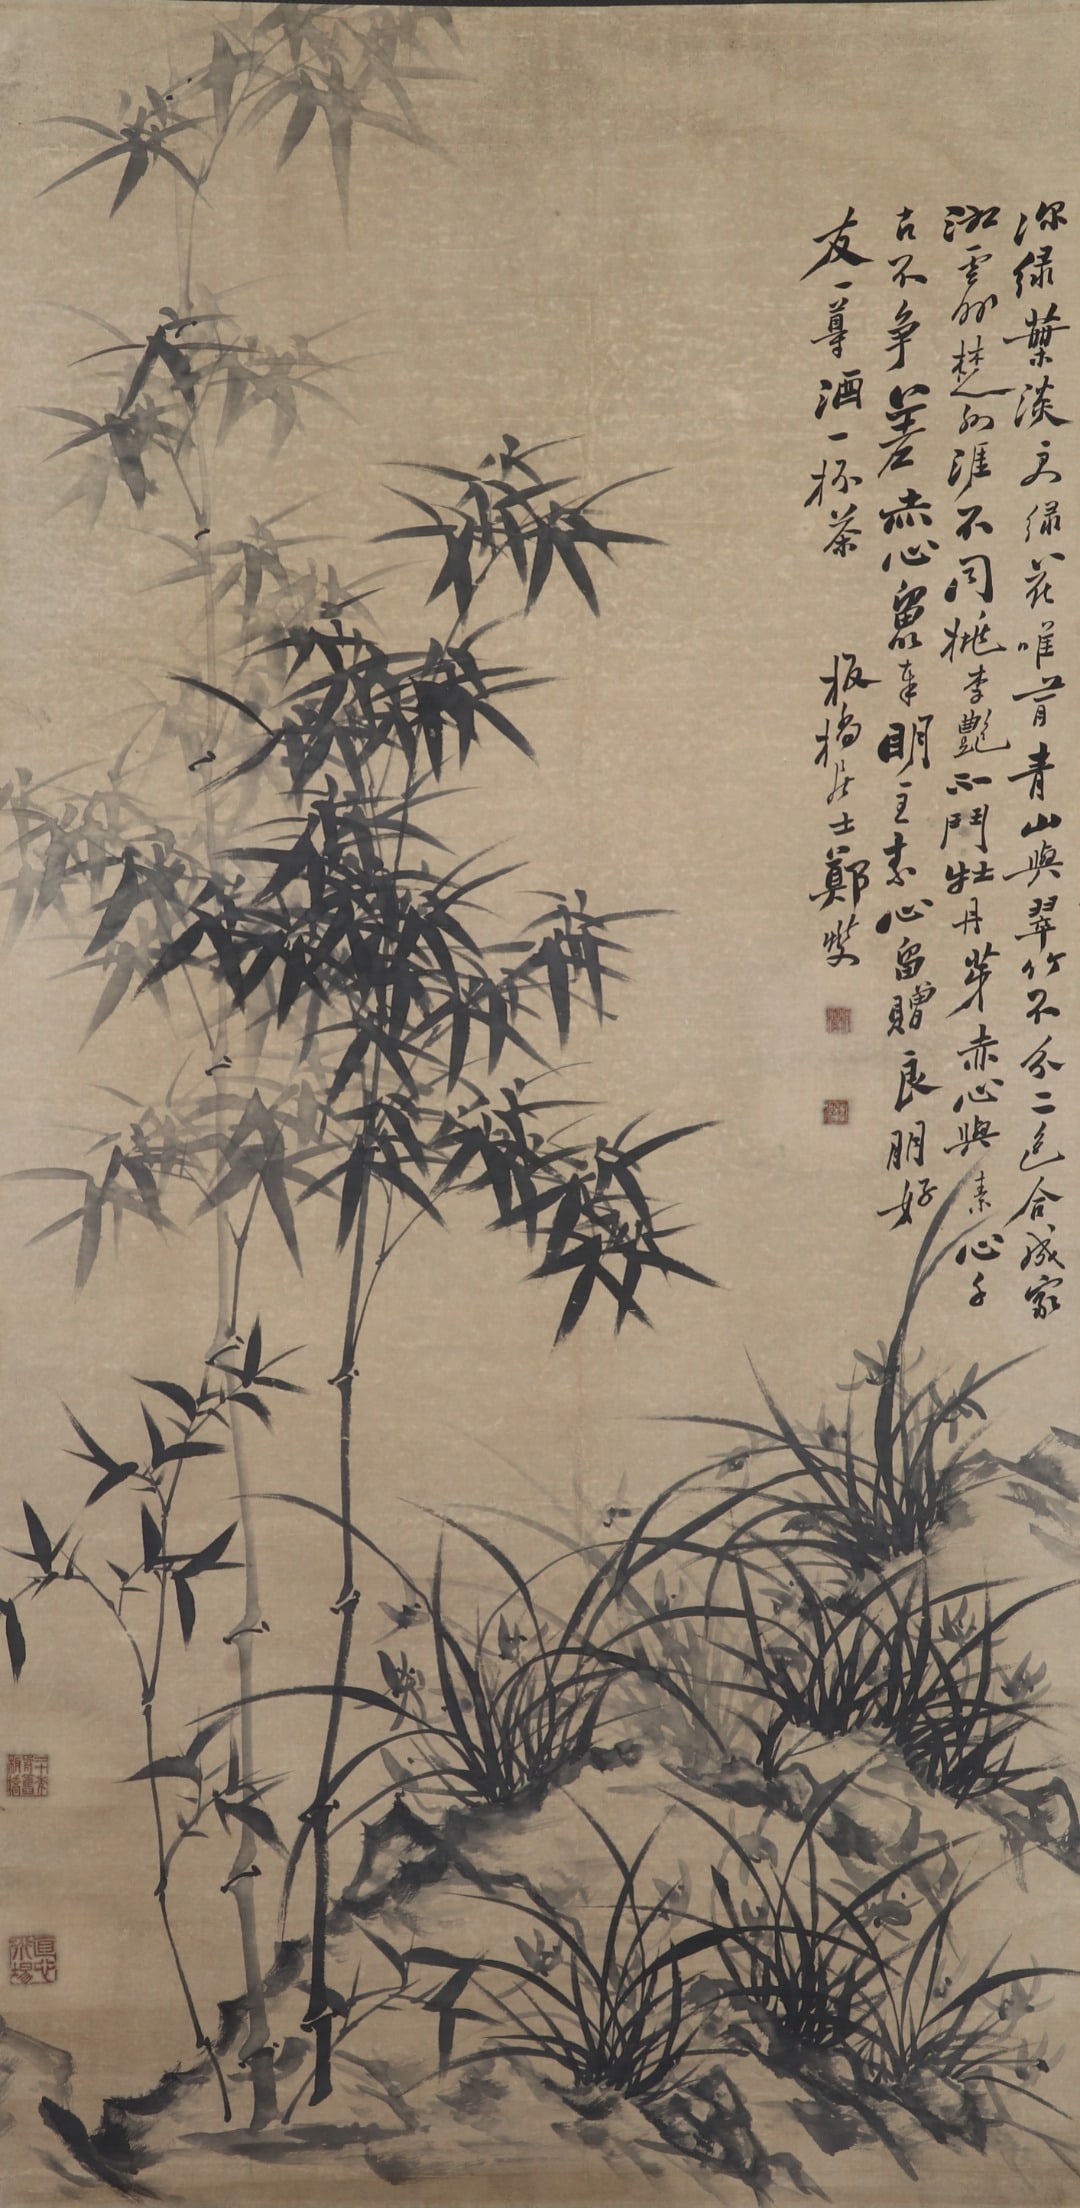 深绿葉淡文绿花唯肯青山與翠竹不分二色合成家
湘雲外楚水涯不同桃李艷不鬥牡丹芽赤心與素心千
古不争差赤心留奉明主素心留贈良朋好
友一尊酒一杯茶
板橋居士鄭燮
直心道場